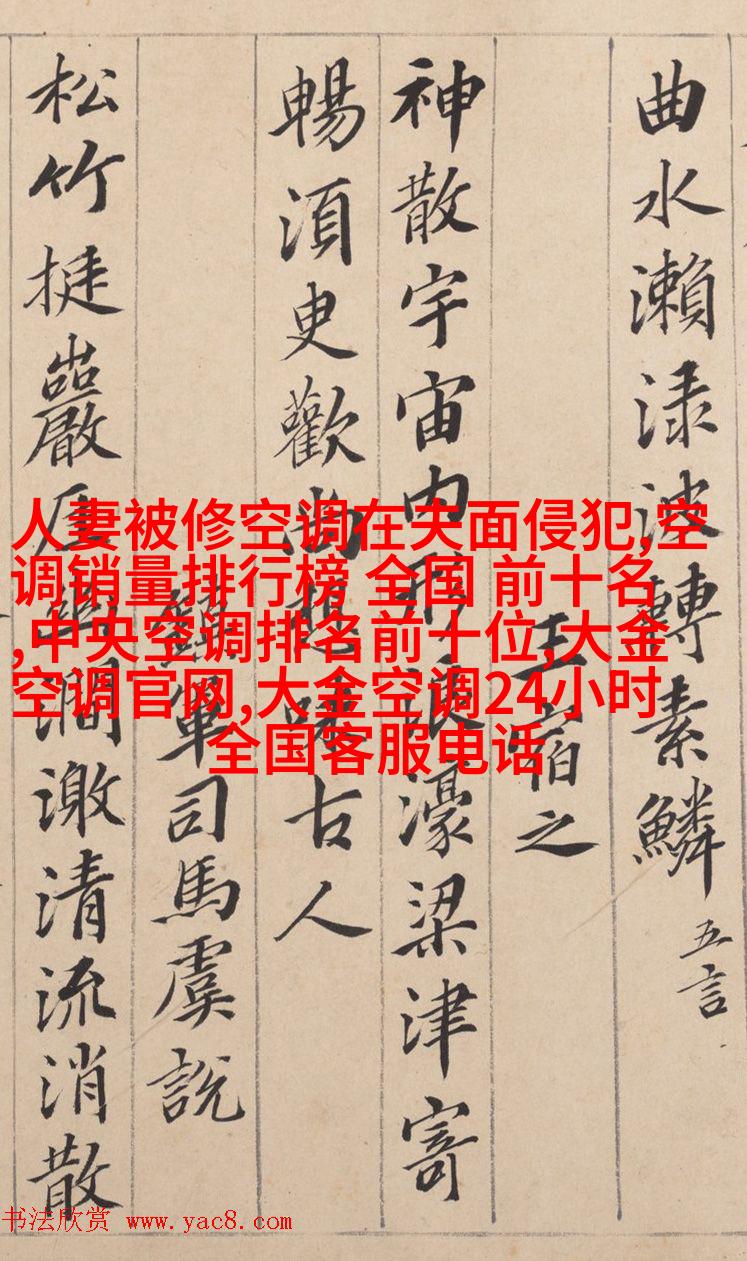 曲水瀨渌波轉素鱗 五言
王宿之
神散宇宙内形浪濠梁津寄
暢湏臾歡尚想味古人
鎮軍司馬虞說
松竹挺巖崖幽澗激清流消散
人妻被修空调在夫面侵犯,空
调销量排行榜 全国 前十名
,中央空调排名前十位,大金
空调官网,大金空调24小时
全国客服电话
书法欣赏 www.yac8.com